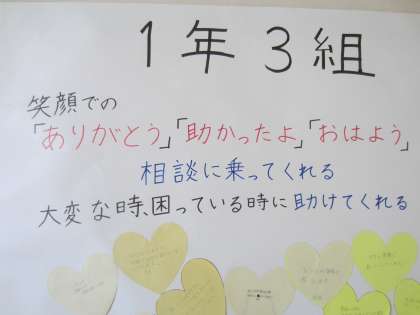 1年3組
笑顔での
「ありがとう」「助かったよ」「おはよう」
相談に乗ってくれる
大変な時、困っている時に助けてくれる